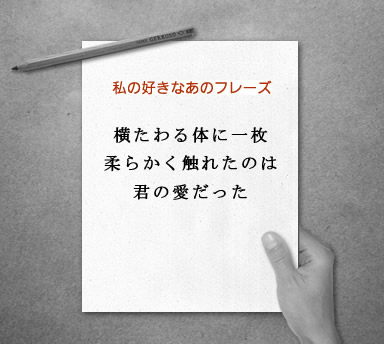 私の好きなあのフレーズ
横たわる体に一枚
柔らかく触れたのは
君の愛だった